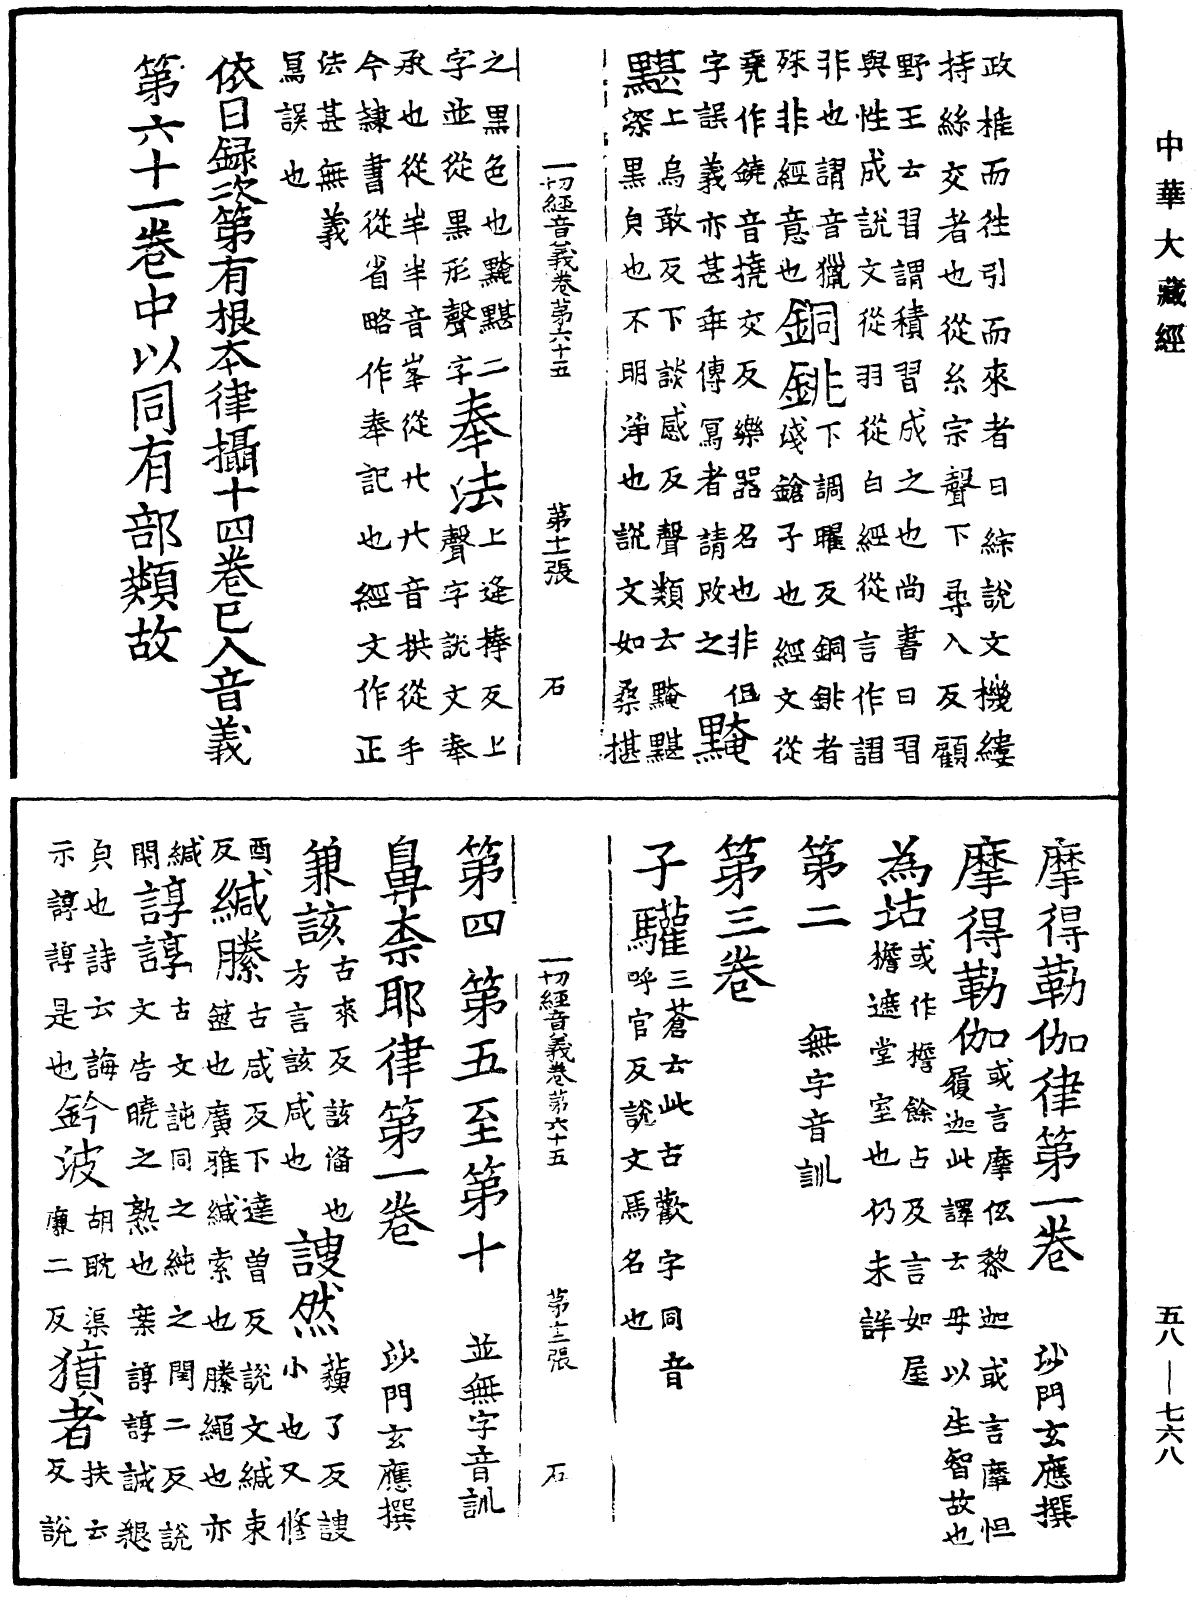 中華大藏經
政椎而往引而來者曰綜說文機縷
持絲交者也從糸宗聲下尋入反顧
野王云習謂積習成之也尚書曰習
與性成說文從羽從白經從言作謵
非也謵音獵
銅銚
下調曜反銅銚者
殊非經意也
淺鎗子也經文從
堯作鐃音撓交反樂器名也非但
字誤義亦甚乖傳寫者請改之
黤
黮
上烏敢反下談感反聲類云黤黮
深黑皃也不明淨也說文如桑揕
一切經音義卷第六十五　第十二張　石
之黑色也黤黮二
字並從黑形聲字
奉法
上逢捧反上
聲字說文奉
承也從半半音峯從廾廾音拱從手
今隸書從省略作奉記也經文作正
法甚無義
寫誤也
依目録次第有根本律攝十四卷已入音義
第六十一卷中以同有部類故
摩得勒伽律第一卷　沙門玄應撰
摩得勒伽
或言摩伭黎迦或言摩怛
履迦此譯云母以生智故也
為坫
或作橝餘占反言如屋
檐遮堂室也仍未詳
第二　無字音訓
第三卷
子驩
三蒼云此古歡字同音
呼官反說文馬名也
一切經音義卷第六十五　第十三張　石
第四第五至第十　並無字音訓
鼻柰耶律第一卷　沙門玄應撰
兼該
古來反該備也
方言該咸也
謏然
蘇了反謏
小也又修
酉反
緘縢
古咸反下達曾反說文緘束
篋也廣雅緘索也縢繩也亦
緘閑
諄諄
古文訰同之純之閏二反說
文告曉之熟也案諄諄誠懇
皃也詩云誨
示諄諄是也
鈐波
胡耽渠
廉二反
獖者
扶云
反說
五八—七六八